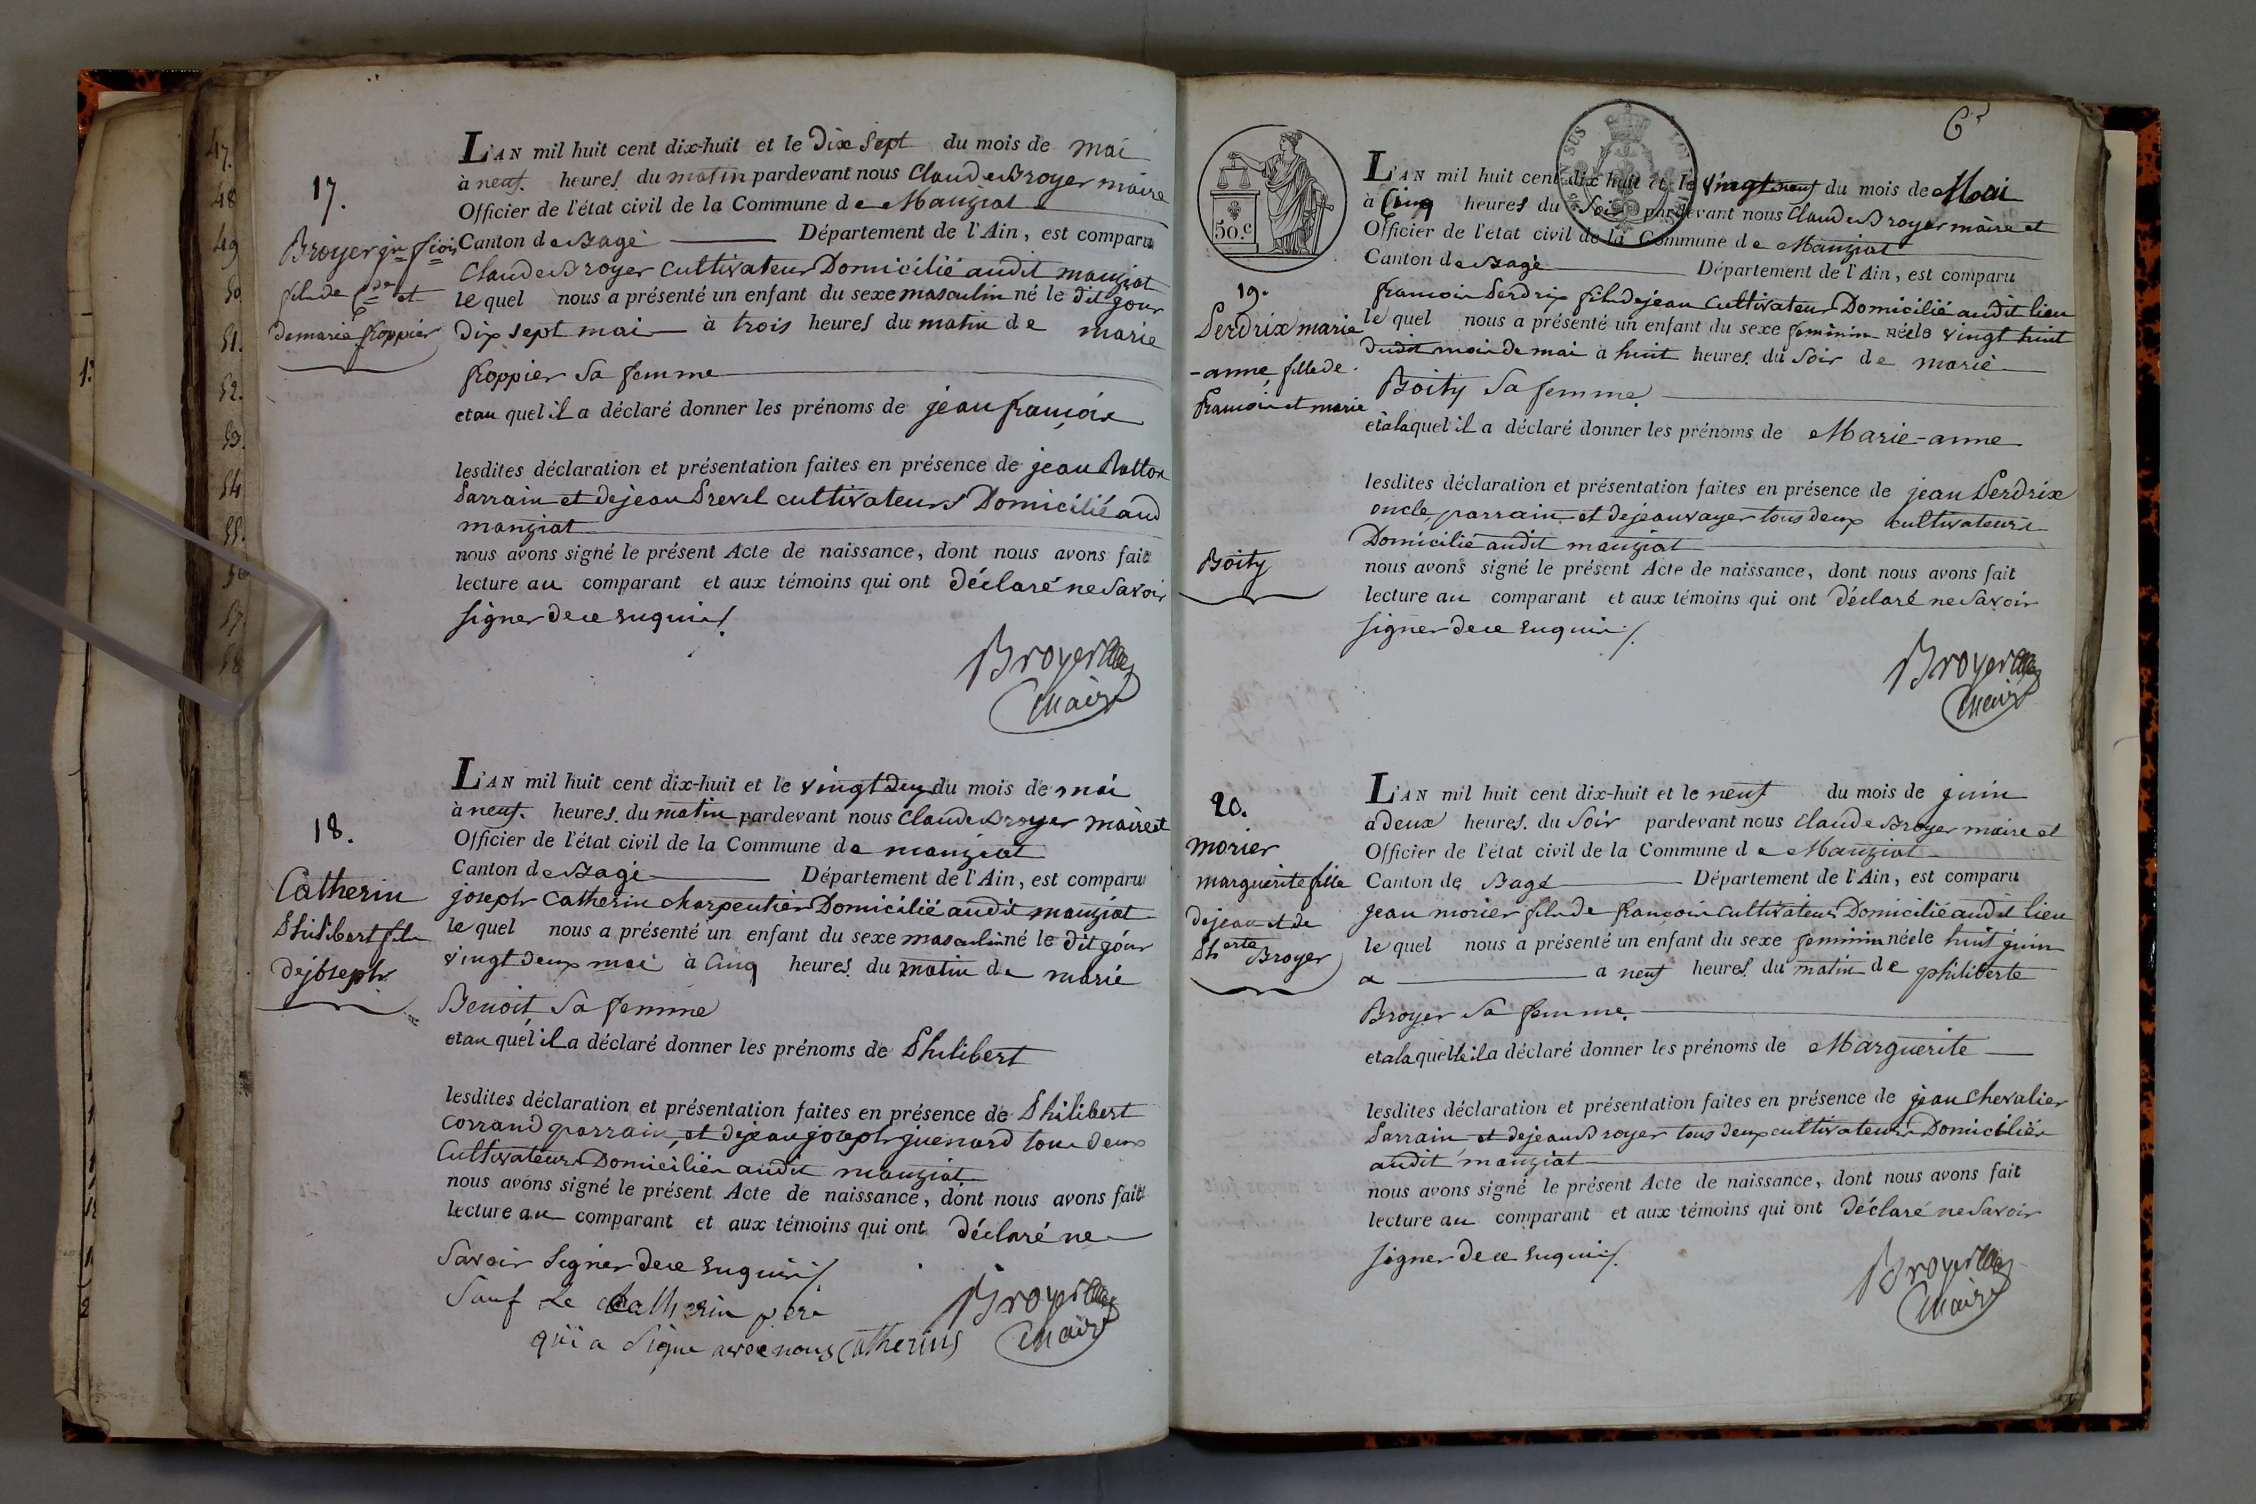 47.
48
49
50
51.
52.
53.
54
55.
56
57
58
17.
Broyer jn fcois
fils de Cde et
de marie froppier
L'AN mil huit cent dix-huit et le dix sept du mois de mai
à neuf heures du matin pardevant nous Claude Broyer maire
Officier de l'état civil de la Commune de Manziat
Canton de Bagé Département de l'Ain, est comparu
Claude Broyer cultivateur Domicilié audit manziat
le quel nous a présenté un enfant du sexe masculin né le dit jour
dix sept mai à trois heures du matin de marie
froppier sa femme
et au quel il a déclaré donner les prénoms de jean françois
lesdites déclaration et présentation faites en présence de jean
Parrain et de jean Prevel cultivateurs Domicilié aud
manziat
nous avons signé le présent Acte de naissance, dont nous avons fait
lecture au comparant et aux témoins qui ont déclaré ne savoir
signer de ce enquis /.
Broyer
Maire
18.
Catherin
Philibert fils
de joseph
L'AN mil huit cent dix-huit et le vingt deux du mois de mai
à neuf heures du matin pardevant nous Claude Broyer maire et
Officier de l'état civil de la Commune de manziat
Canton de Bagé Département de l'Ain, est comparu
joseph Catherin charpentier Domicilié audit manziat
le quel nous a présenté un enfant du sexe masculin né le dit jour
vingt deux mai à cinq heures du matin de marie
Benoit sa femme
et au quel il a déclaré donner les prénoms de Philibert
lesdites déclaration et présentation faites en présence de Philibert
Corrand parrain, et de jean joseph guenard tous deux
Cultivateurs Domiciliés audit manziat
nous avons signé le présent Acte de naissance, dont nous avons fait
lecture au comparant et aux témoins qui ont déclaré ne
savoir signer de ce enquis /.
Sauf le Catherin pere
qui a signe avec nous Catherins
Broyer
Maire
6e
50.c
19.
Perdrix marie
-anne, fille de
françois et marie
Boity
L'AN mil huit cent dix huit et le vingt neuf du mois de Mai
à Cinq heures du soir pardevant nous Claude Broyer maire et
Officier de l'état civil de la Commune de Manziat
Canton de Bagé Département de l'Ain, est comparu
francois Perdrix fils de jean cultivateur Domicilié audit lieu
le quel nous a présenté un enfant du sexe feminin née le vingt huit
dudit mois de mai à huit heures du soir de marie
Boity sa femme
et à laquel il a déclaré donner les prénoms de Marie-anne
lesdites déclaration et présentation faites en présence de jean Perdrix
oncle, parrain, et de jean vayer tous deux cultivateurs
Domicilié audit manziat
nous avons signé le présent Acte de naissance, dont nous avons fait
lecture au comparant et aux témoins qui ont déclaré ne savoir
signer de ce enquis /.
Broyer
Maire
20.
morier
marguerite fille
de jean et de
Pherte Broyer
L'AN mil huit cent dix-huit et le neuf du mois de juin
à deux heures du soir pardevant nous Claude Broyer maire et
Officier de l'état civil de la Commune de Manziat
Canton de Bagé Département de l'Ain, est comparu
jean morier fils de françois cultivateur Domicilié audit lieu
le quel nous a présenté un enfant du sexe feminin née le huit juin
a à neuf heures du matin de philiberte
Broyer sa femme
et à laquelle il a déclaré donner les prénoms de Marguerite
lesdites déclaration et présentation faites en présence de jean chevalier
Parrain et de jean Broyer tous deux cultivateurs Domiciliés
audit manziat
nous avons signé le présent Acte de naissance, dont nous avons fait
lecture au comparant et aux témoins qui ont déclaré ne savoir
signer de ce enquis /.
Broyer
Maire